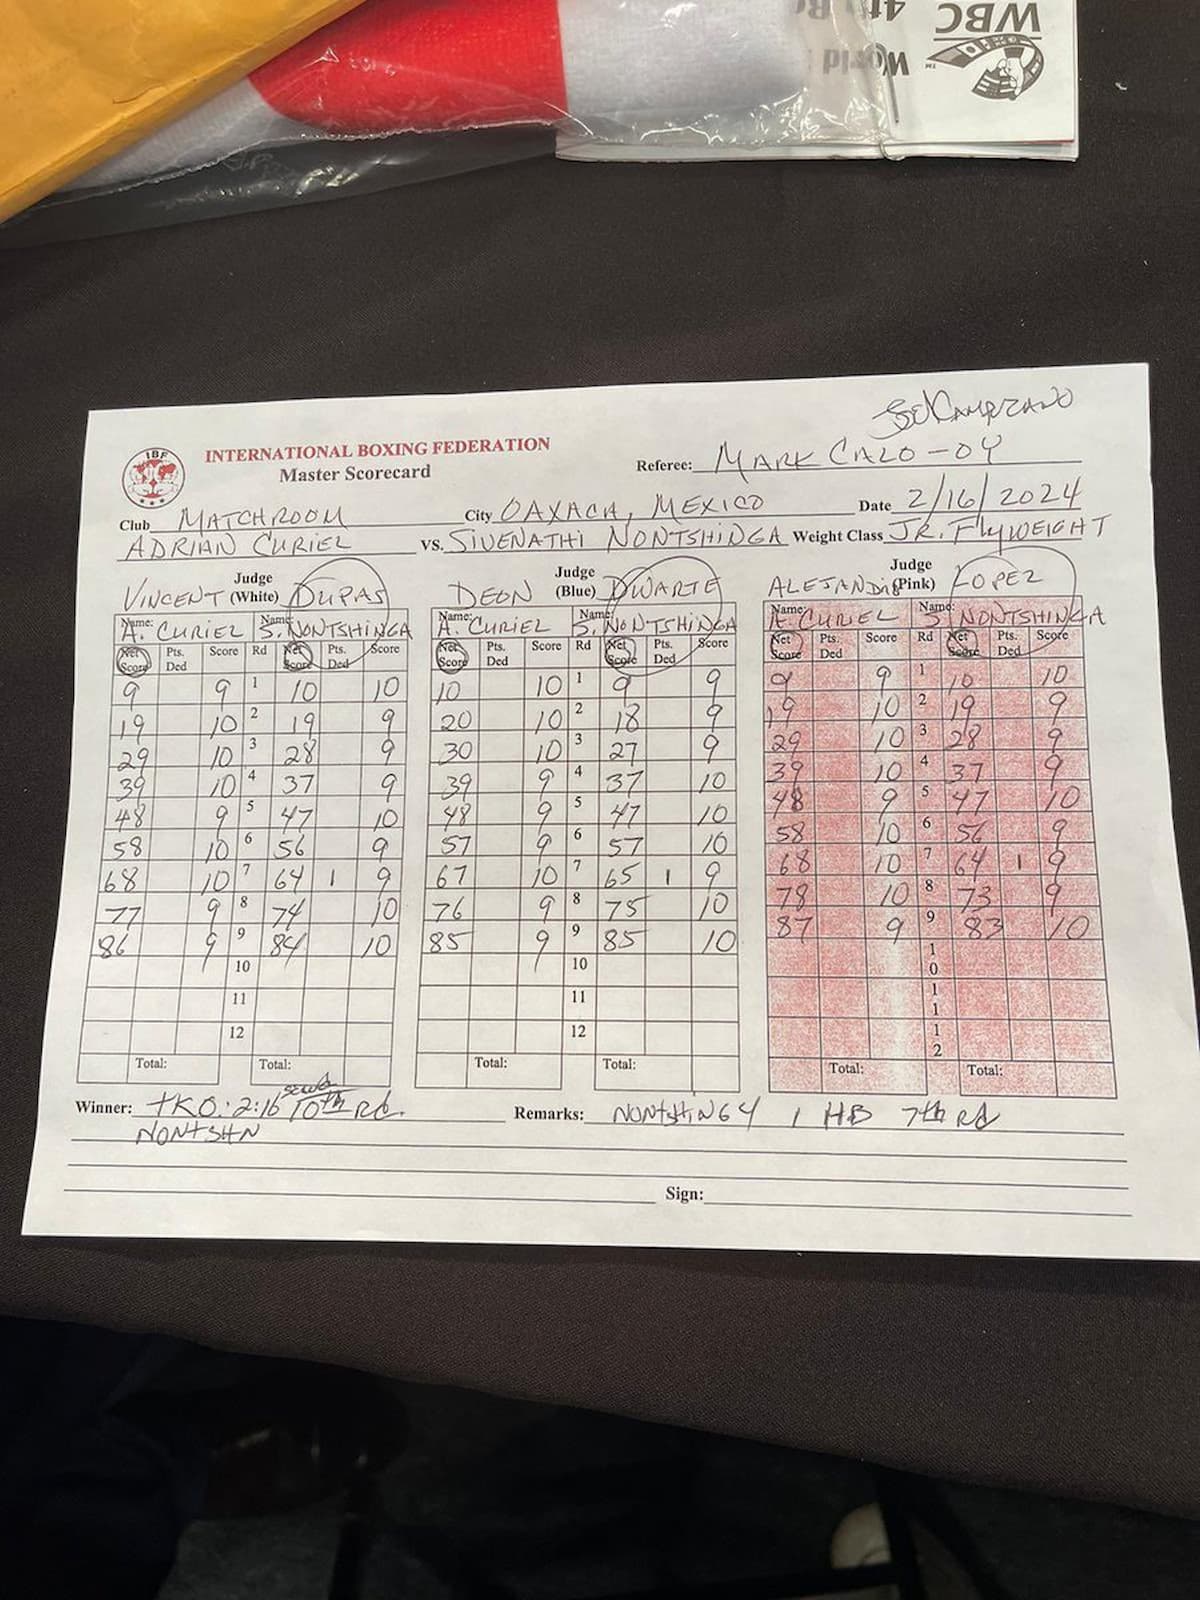 WBC
4th
World
IBF
INTERNATIONAL BOXING FEDERATION
Master Scorecard
Referee: MARK CALO-OY
Club MATCHROOM City OAXACA, MEXICO Date 2/16/2024
ADRIAN CURIEL VS. SIVENATHI NONTSHINGA Weight Class JR. FLYWEIGHT
Judge Judge Judge
VINCENT (White) DUPAS DEON (Blue) DWARTE (Pink) LOPEZ
Name: A. CURIEL Name: S. NONTSHINGA Name: A. CURIEL Name: S. NONTSHINGA Name: A. CURIEL Name: S NONTSHINGA
Net Score Pts. Ded Score Rd Net Score Pts. Ded Score Net Score Pts. Ded Score Rd Net Score Pts. Ded Score Net Score Pts. Ded Score Rd Net Score Pts. Ded Score
9 9 1 10 10 10 10 1 9 9 9 9 1 10 10
19 10 2 19 9 20 10 2 18 9 19 10 2 19 9
29 10 3 28 9 30 10 3 27 9 29 10 3 28 9
39 10 4 37 9 39 9 4 37 10 39 10 4 37 9
48 9 5 47 10 48 9 5 47 10 48 9 5 47 10
58 10 6 56 9 57 9 6 57 10 58 10 6 56 9
68 10 7 64 1 9 67 10 7 65 1 9 68 10 7 64 1 9
77 9 8 74 10 76 9 8 75 10 78 10 8 73 9
86 9 9 84 10 85 9 9 85 10 87 9 9 83 10
10 10 10
11 11 11
12 12 12
Total: Total: Total: Total: Total: Total:
Winner: TKO: 2:16 10th Rd. Remarks: NONTSHINGY 1 HB 7th Rd
NONTSHN
Sign: